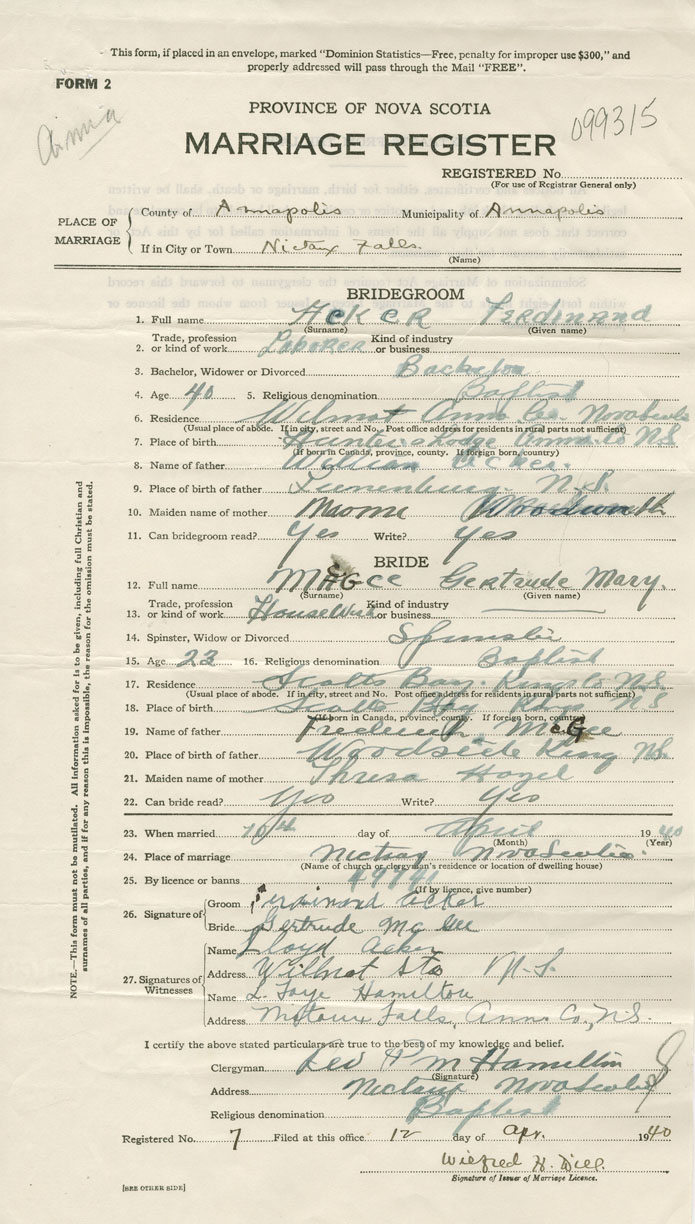 This form, if placed in an envelope, marked "Dominion Statistics—Free, penalty for improper use $300," and
properly addressed will pass through the Mail "FREE".
FORM 2
PROVINCE OF NOVA SCOTIA
099315
MARRIAGE REGISTER
REGISTERED No.
(For use of Registrar General only)
PLACE OF MARRIAGE
County of Annapolis Municipality of Annapolis
If in City or Town Nictaux Falls.
(Name)
BRIDEGROOM
1. Full name Acker Ferdinand
(Surname) (Given name)
2. Trade, profession or kind of work Laborer Kind of industry or business
3. Bachelor, Widower or Divorced Bachelor
4. Age 40 5. Religious denomination Baptist
6. Residence Wilmot Anna Co. Nova Scotia
(Usual place of abode. If in city, street and No. Post office address for residents in rural parts not sufficient)
7. Place of birth Lodge Anna Co N.S
(If born in Canada, province, county. If foreign born, country)
8. Name of father William Acker.
9. Place of birth of father Lunenburg N.S
10. Maiden name of mother Woodworth
11. Can bridegroom read? Yes Write? Yes
BRIDE
12. Full name McGee Gertrude Mary.
(Surname) (Given name)
13. Trade, profession or kind of work HouseWork Kind of industry or business
14. Spinster, Widow or Divorced Spinster
15. Age 23 16. Religious denomination Baptist
17. Residence Scotts Bay. Kings Co N.S
(Usual place of abode. If in city, street and No. Post office address for residents in rural parts not sufficient)
18. Place of birth Scotts Bay Kings N.S
(If born in Canada, province, county. If foreign born, country)
19. Name of father Frederick McGee
20. Place of birth of father Woodside King N.S.
21. Maiden name of mother Thresa Hazel
22. Can bride read? Yes Write? Yes
23. When married 10th day of April 1940
(Month) (Year)
24. Place of marriage Nictaux Nova Scotia
(Name of church or clergyman's residence or location of dwelling house)
25. By licence or banns
(If by licence, give number)
26. Signature of
Groom Ferdinand Acker
Bride Gertrude Mc Gee
27. Signatures of Witnesses
Name Lloyd Acker
Address Wilmot Sta N.S.
Name L. Faye Hamilton
Address Nictaux Falls, Anna Co, N.S.
I certify the above stated particulars are true to the best of my knowledge and belief.
Clergyman Hamilton
(Signature)
Address Nictaux Nova Scotia
Religious denomination Baptist
Registered No. 7 Filed at this office 12 day of Apr. 1940
Wilfred H. Dill.
Signature of Issuer of Marriage Licence.
[SEE OTHER SIDE]
NOTE.—This form must not be mutilated. All information asked for is to be given, including full Christian and
surnames of all parties, and if for any reason this is impossible, the reason for the omission must be stated.